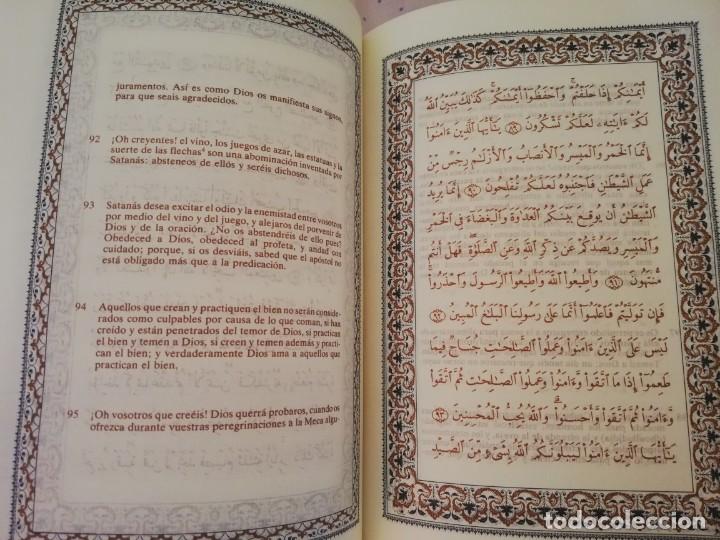 juramentos. Así es como Dios os manifiesta sus signos,
para que seais agradecidos.
92 ¡Oh creyentes! el vino, los juegos de azar, las estatuas y la
suerte de las flechas⁴ son una abominación inventada por
Satanás: absteneos de ellós y seréis dichosos.
93 Satanás desea excitar el odio y la enemistad entre vosotros
por medio del vino y del juego, y alejaros del porvenir de
Dios y de la oración. ¿No os abstendréis de ello pues?
Obedeced a Dios, obedeced al profeta, y andad con
cuidado; porque, si os desviáis, sabed que el apóstol no
está obligado más que a la predicación.
94 Aquellos que crean y practiquen el bien no serán conside-
rados como culpables por causa de lo que coman, si han
creído y están penetrados del temor de Dios, si practican
el bien y temen a Dios, si creen y temen además y practi-
can el bien; y verdaderamente Dios ama a aquellos que
practican el bien.
95 ¡Oh vosotros que creéis! Dios querrá probaros, cuando os
ofrezca durante vuestras peregrinaciones a la Meca algu-
أَيْمَٰنِكُمْ إِذَا حَلَفْتُمْ وَٱحْفَظُوٓا۟ أَيْمَٰنَكُمْ كَذَٰلِكَ يُبَيِّنُ ٱللَّهُ
لَكُمْ ءَايَٰتِهِۦ لَعَلَّكُمْ تَشْكُرُونَ ﴿٨٩﴾ يَٰٓأَيُّهَا ٱلَّذِينَ ءَامَنُوٓا۟
إِنَّمَا ٱلْخَمْرُ وَٱلْمَيْسِرُ وَٱلْأَنصَابُ وَٱلْأَزْلَٰمُ رِجْسٌ مِّنْ
عَمَلِ ٱلشَّيْطَٰنِ فَٱجْتَنِبُوهُ لَعَلَّكُمْ تُفْلِحُونَ ﴿٩٠﴾ إِنَّمَا يُرِيدُ
ٱلشَّيْطَٰنُ أَن يُوقِعَ بَيْنَكُمُ ٱلْعَدَٰوَةَ وَٱلْبَغْضَآءَ فِى ٱلْخَمْرِ
وَٱلْمَيْسِرِ وَيَصُدَّكُمْ عَن ذِكْرِ ٱللَّهِ وَعَنِ ٱلصَّلَوٰةِ فَهَلْ أَنتُم
مُّنتَهُونَ ﴿٩١﴾ وَأَطِيعُوا۟ ٱللَّهَ وَأَطِيعُوا۟ ٱلرَّسُولَ وَٱحْذَرُوا۟
فَإِن تَوَلَّيْتُمْ فَٱعْلَمُوٓا۟ أَنَّمَا عَلَىٰ رَسُولِنَا ٱلْبَلَٰغُ ٱلْمُبِينُ ﴿٩٢﴾
لَيْسَ عَلَى ٱلَّذِينَ ءَامَنُوا۟ وَعَمِلُوا۟ ٱلصَّٰلِحَٰتِ جُنَاحٌ فِيمَا
طَعِمُوٓا۟ إِذَا مَا ٱتَّقَوا۟ وَّءَامَنُوا۟ وَعَمِلُوا۟ ٱلصَّٰلِحَٰتِ ثُمَّ ٱتَّقَوا۟
وَّءَامَنُوا۟ ثُمَّ ٱتَّقَوا۟ وَّأَحْسَنُوا۟ وَٱللَّهُ يُحِبُّ ٱلْمُحْسِنِينَ ﴿٩٣﴾
يَٰٓأَيُّهَا ٱلَّذِينَ ءَامَنُوا۟ لَيَبْلُوَنَّكُمُ ٱللَّهُ بِشَىْءٍ مِّنَ ٱلصَّيْدِ
todocoleccion